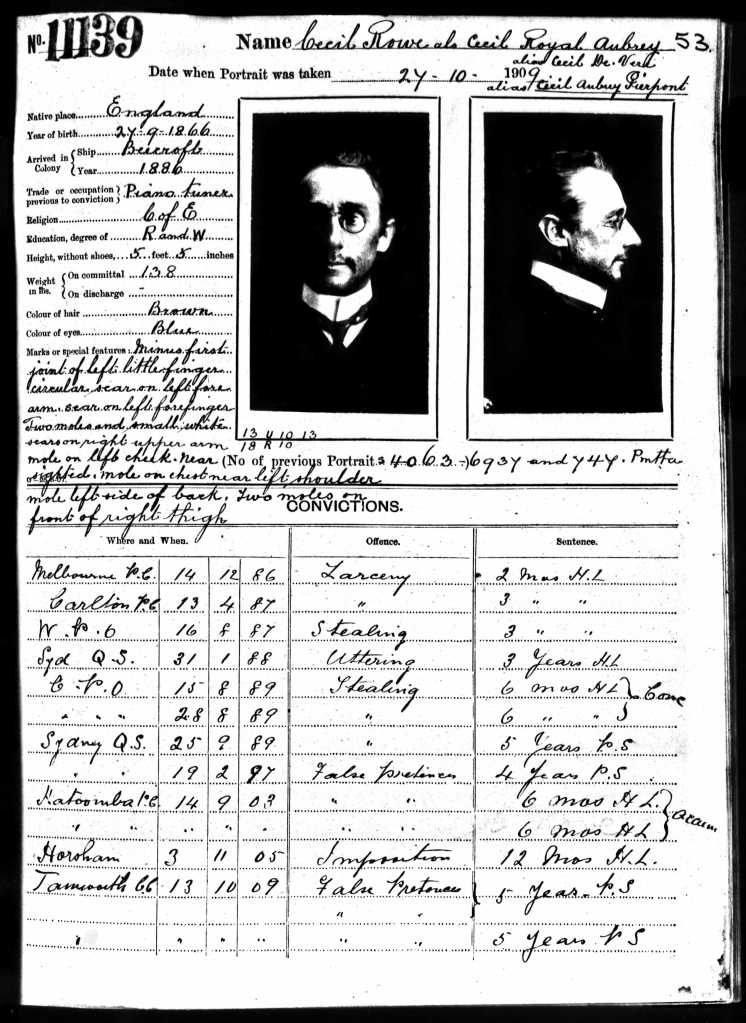 No. 11139
Name Cecil Rowe als Cecil Royal Aubrey 53.
alias Cecil De. Vere
Date when Portrait was taken 27-10-1909
alias Cecil Aubrey Pierpont
Native place England
Year of birth 27-9-1866
Arrived in Colony { Ship Beecroft
Year 1886
Trade or occupation previous to conviction } Piano tuner
Religion C of E
Education, degree of R and W
Height, without shoes, 5 feet 5 inches
Weight in lbs. { On committal 138
On discharge -
Colour of hair Brown
Colour of eyes Blue
Marks or special features: Minus first
joint of left little finger
circular scar on left fore
arm. scar on left forefinger
Two moles and small white
scars on right upper arm
13 U 10 13
18 R 10
mole on left cheek. Near (No of previous Portrait 4063-) 6937 and 747. Pmtta
sighted. mole on chest near left shoulder
mole left side of back. Two moles on
front of right thigh
CONVICTIONS.
Where and When. Offence. Sentence.
Melbourne P.C. 14 12 86 Larceny 2 Mos H.L
Carlton P.C 13 4 87 " 3 " "
W. P. O 16 8 87 Stealing 3 " "
Syd Q.S. 31 1 88 Uttering 3 Years H.L
C. P. O 15 8 89 Stealing 6 mos H L } Conc
" " " 28 8 89 " 6 " " }
Sydney Q.S. 25 9 89 " 5 Years P.S
" " 19 2 97 False Pretences 4 Years P.S.
Katoomba P.C. 14 9 03 " " 6 mos H L. } Accum
" " " " " " " 6 mos H L }
Horsham 3 11 05 Imposition 12 Mos H.L.
Tamworth C.C 13 10 09 False Pretences } 5 Year P.S
" " }
" " " " " " 5 Years P S